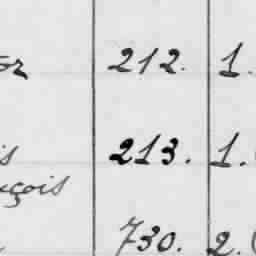 212. 1.
213. 1.
çois
730. 2.